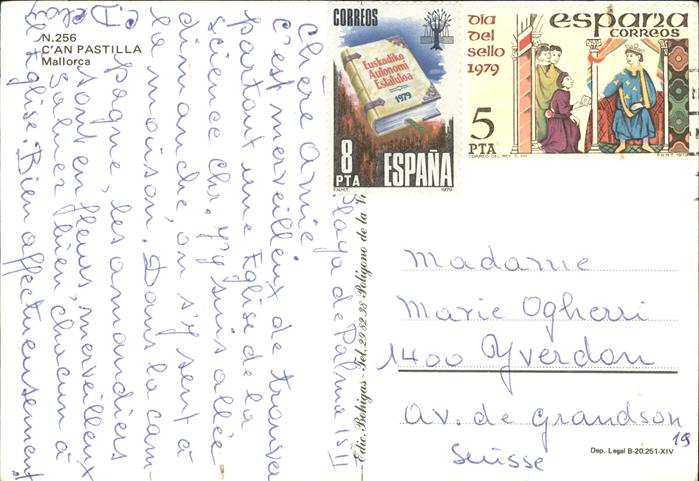 N.256
C'AN PASTILLA
Mallorca
CORREOS
Euskadiko
Autonomi
Estatutoa
1979
8
PTA
ESPAÑA
F.N.M.T.
1979
DIA
DEL
SELLO
1979
ESPAÑA
CORREOS
5
PTA
CORREO DEL REY S. XIII.
F.N.M.T.
Playa de Palma 15 II
Chère amie
c'est merveilleux de trouver
partout une Eglise de la
science chr. j'y suis allée
dimanche, on s'y sent à
la maison. Dans la cam-
pagne, les amandiers
sont en fleurs, merveilleux
saluer bien, chacun à
l'Eglise. Bien affectueusement
Edic. Bohigas - Tel. 22 82 38 - Polígono de la
Madame
Marie Ogherri
1400 Yverdon
Av. de Grandson
19
Suisse
Dep. Legal B-20.251-XIV